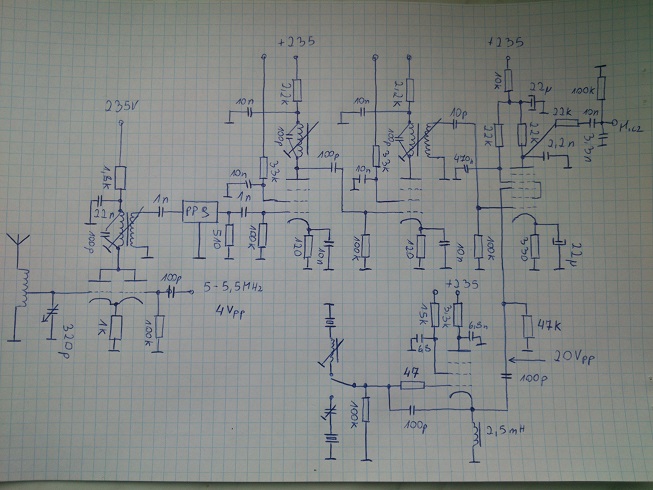 +235
+235
+235
235V
2,2k
2,2k
10k
22µ
100k
10n
10n
10p
22k
10n
M.cz
100p
100p
22k
22k
3,3n
2,2n
1,8k
33k
100p
33k
470p
10n
10n
22n
1n
PP9
1n
100p
510
100k
120
10n
100k
120
10n
100k
330
22µ
320p
1k
100k
100p
5-5,5MHz
4Vpp
+235
15k
3,3k
6,8n
68
47k
20Vpp
100p
47
100k
100p
2,5mH